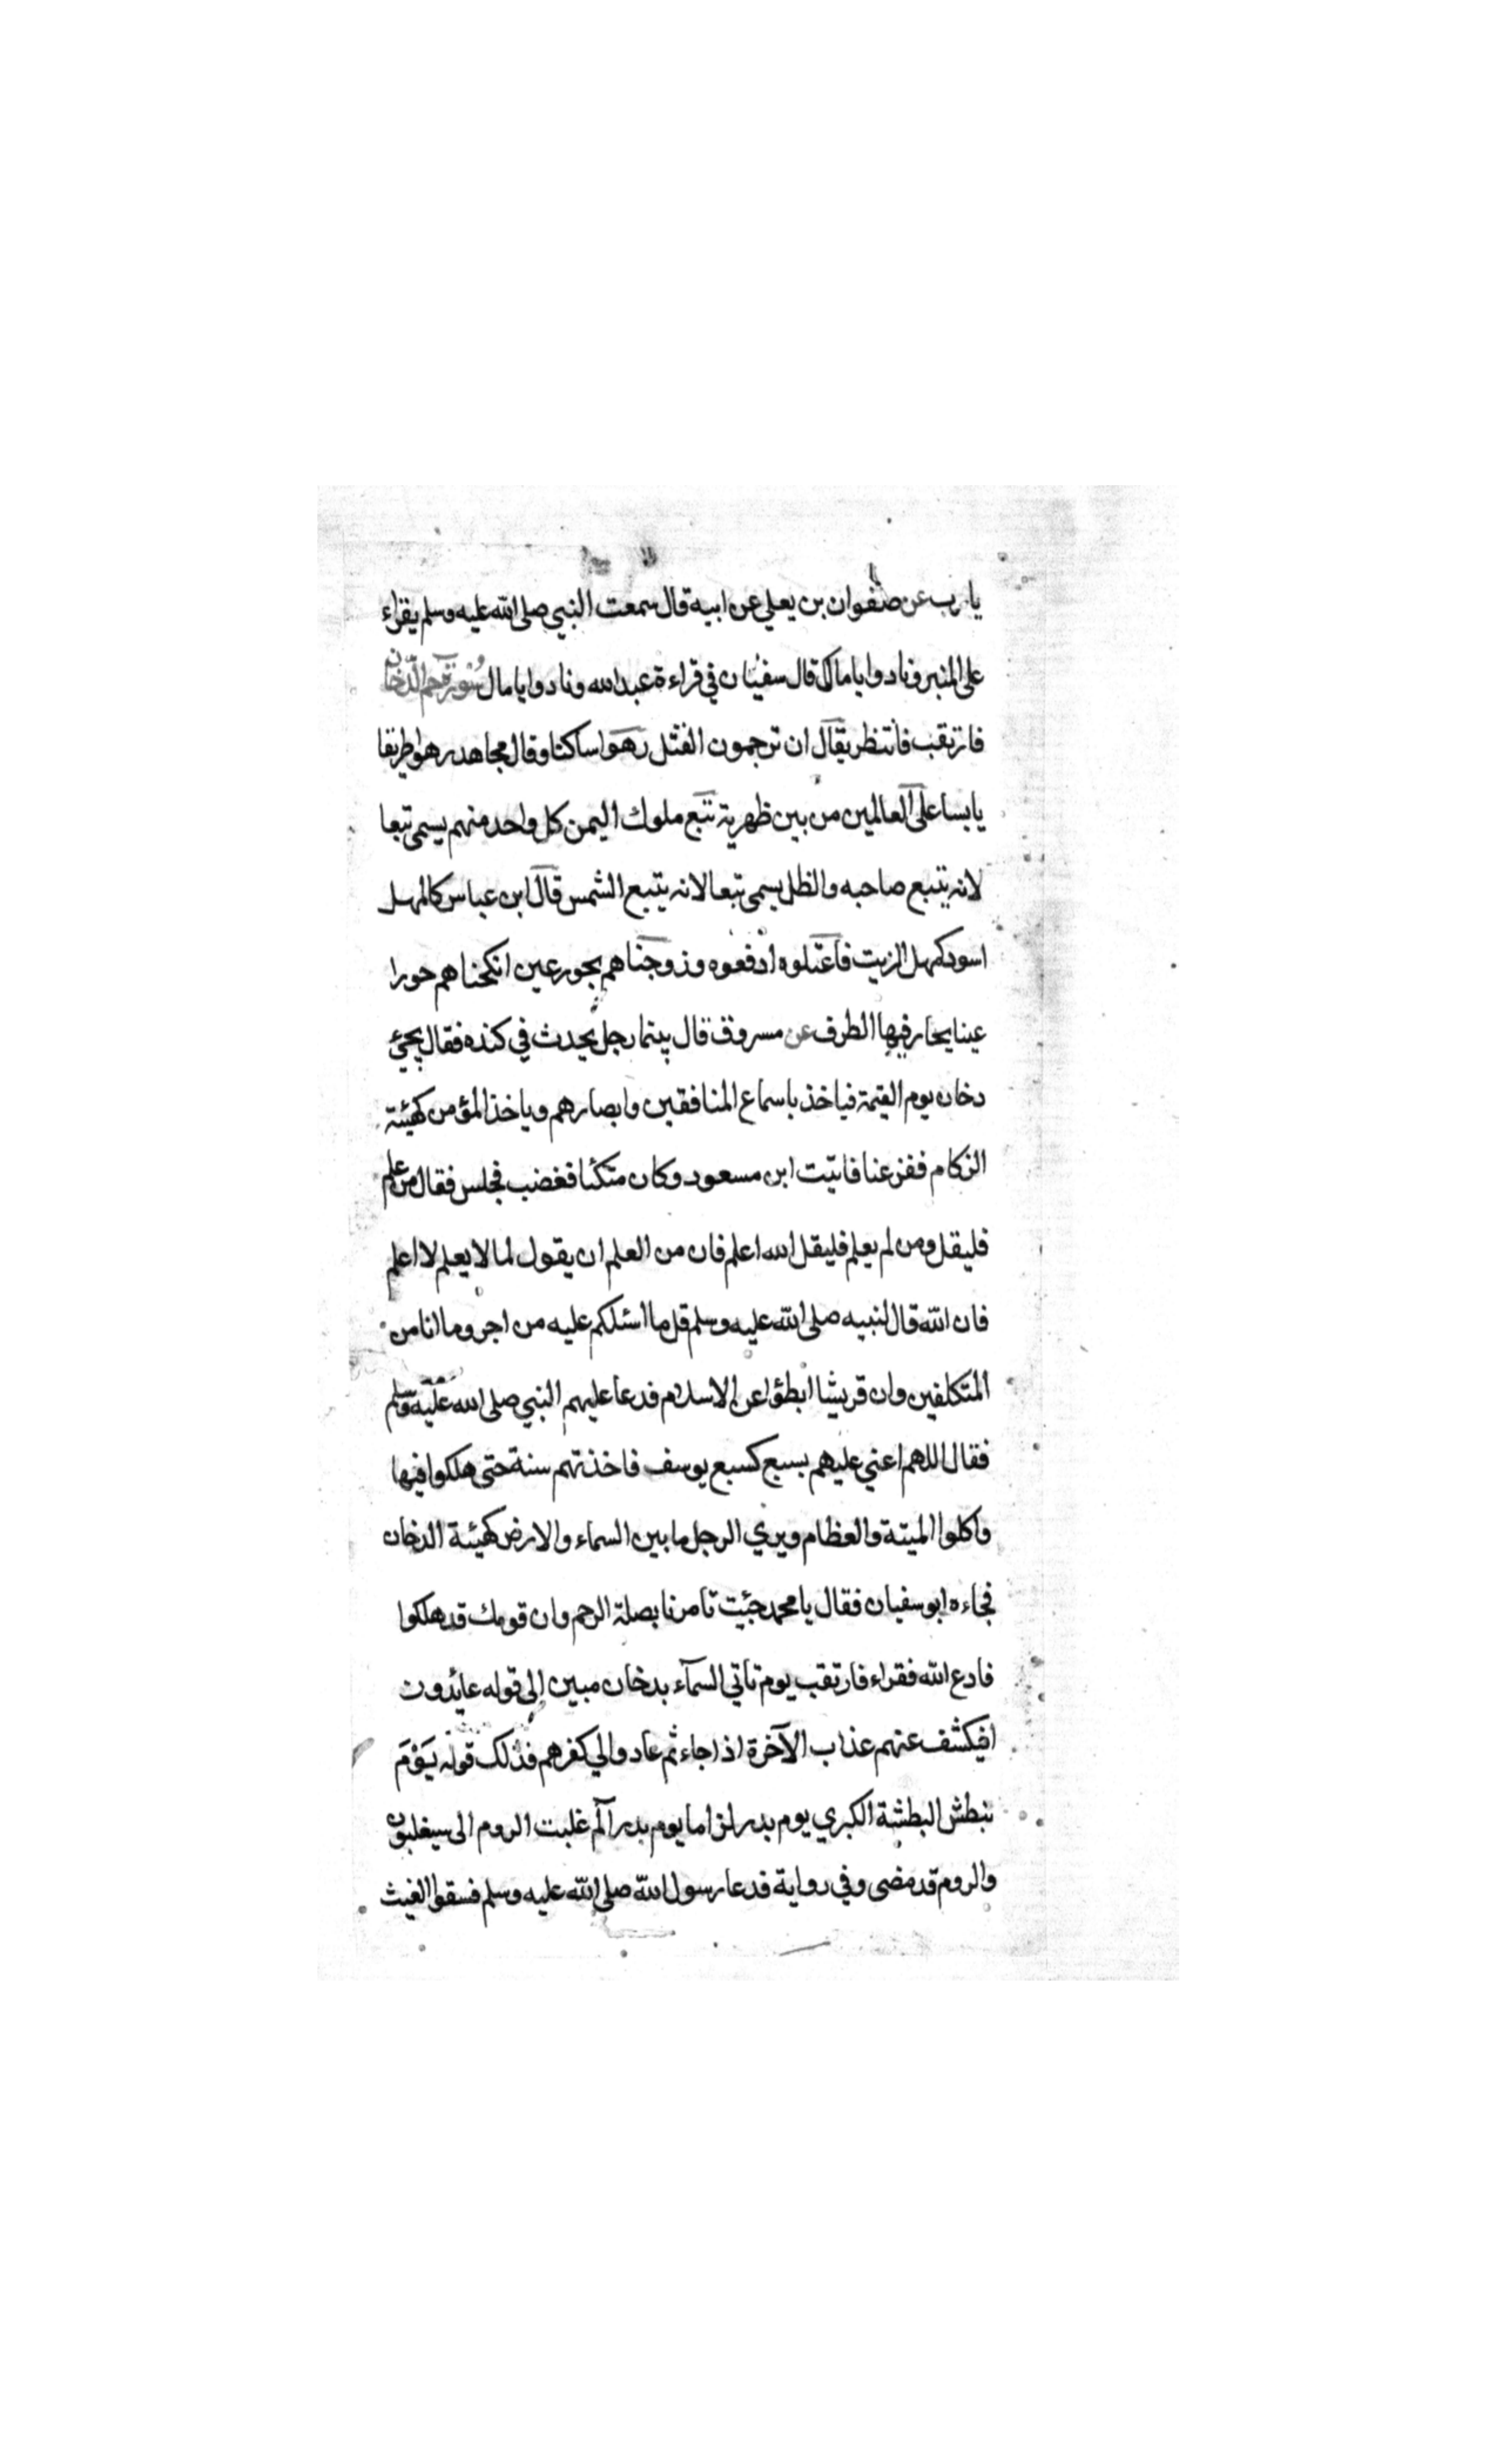 يا رب عن صفوان بن يعلي عن ابيه قال سمعت النبي صلى الله عليه وسلم يقراء
على المنبر ونادوا يا مالك قال سفيان في قراءة عبد الله ونادوا يا مال سورة حم الدخان
فارتقب فانتظر يقال ان ترجمون القتل رهوا ساكنا وقال مجاهد رهوا طريقا
يابسا على العالمين من بين ظهريه تبع ملوك اليمن كل واحد منهم يسمى تبعا
لانه يتبع صاحبه والظل يسمى تبعا لانه يتبع الشمس قال ابن عباس كالمهل
اسود كمهل الزيت فاعتلوه ادفعوه وزوجناهم بحور عين انكحناهم حورا
عينا يحار فيها الطرف عن مسروق قال بينما رجل يحدث في كنده فقال يجئ
دخان يوم القيمة فياخذ باسماع المنافقين وابصارهم وياخذ المؤمن كهيئة
الزكام ففزعنا فاتيت ابن مسعود وكان متكئا فغضب فجلس فقال من علم
فليقل ومن لم يعلم فليقل الله اعلم فان من العلم ان يقول لما لا يعلم لا اعلم
فان الله قال لنبيه صلى الله عليه وسلم قل ما اسئلكم عليه من اجر وما انا من
المتكلفين وان قريشا ابطؤا عن الاسلام فدعا عليهم النبي صلى الله عليه وسلم
فقال اللهم اعني عليهم بسبع كسبع يوسف فاخذتهم سنة حتى هلكوا فيها
واكلوا الميتة والعظام ويري الرجل ما بين السماء والارض كهيئة الدخان
فجاءه ابو سفيان فقال يا محمد جئت تامرنا بصلة الرحم وان قومك قد هلكوا
فادع الله فقراء فارتقب يوم تاتي السمآء بدخان مبين إلى قوله عائدون
افيكشف عنهم عذاب الآخرة اذا جاء ثم عادوا الي كفرهم فذلك قوله يَوْمَ
نبطش البطشة الكبري يوم بدر لزاما يوم بدر آلم غلبت الروم الى سيغلبون
والروم قد مضى وفي رواية فدعا رسول الله صلى الله عليه وسلم فسقوا الغيث